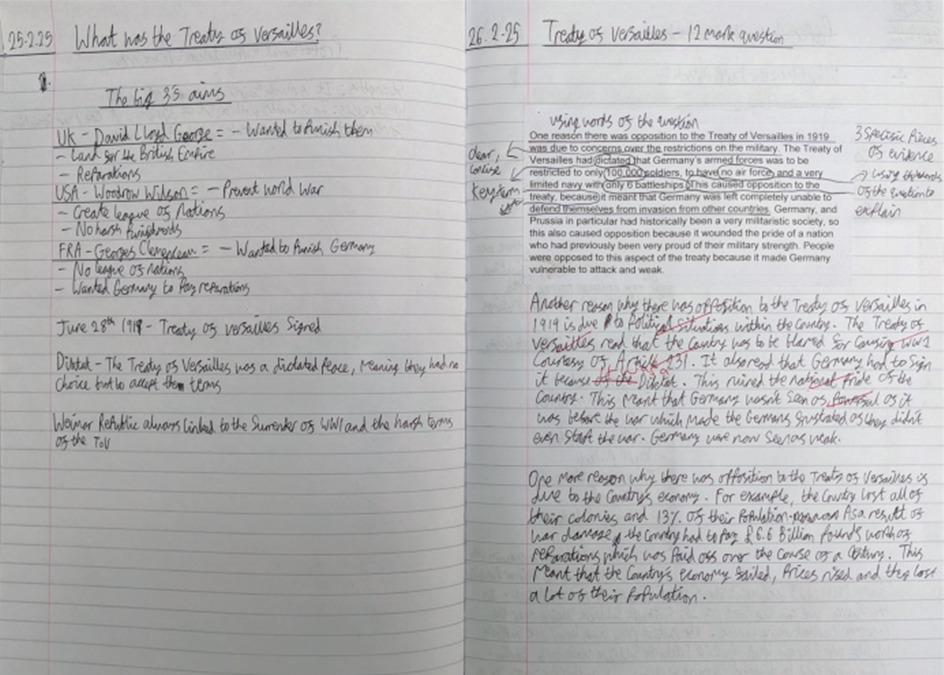 25.2.25 What was the Treaty of Versailles?
The big 3's aims
UK - David Lloyd George = - Wanted to Punish them
- Land for the British Empire
- Reparations
USA - Woodrow Wilson = - Prevent world War
- Create league of Nations
- No harsh
FRA - Georges = - Wanted to Punish Germany
- No league of nations
- Wanted Germany to Pay reparations
June 28th 1919 - Treaty of versailles Signed
Diktat - The Treaty of Versailles was a dictated Peace, meaning they had no
choice but to accept the terms
Weimar Republic always linked to the Surrender of WW1 and the harsh terms
of the ToV
26.2.25 Treaty of Versailles - 12 mark question
using words of the question
One reason there was opposition to the Treaty of Versailles in 1919
was due to concerns over the restrictions on the military. The Treaty of
Versailles had dictated that Germany's armed forces was to be
restricted to only 100,000 soldiers, to have no air force and a very
limited navy with only 6 battleships. This caused opposition to the
treaty, because it meant that Germany was left completely unable to
defend themselves from invasion from other countries. Germany, and
Prussia in particular had historically been a very militaristic society, so
this also caused opposition because it wounded the pride of a nation
who had previously been very proud of their military strength. People
were opposed to this aspect of the treaty because it made Germany
vulnerable to attack and weak.
clear,
concise
Key term
3 Specific Pieces
of evidence
using the words
of the question to
explain
Another reason why there was opposition to the Treaty of Versailles in
1919 is due to Political Situations within the Country. The Treaty of
Versailles read that the Country was to be blamed for Causing WW1
Courtesy of Article 231. It also read that Germany had to Sign
it because Diktat. This ruined the national Pride of the
Country. This meant that Germany wasn't Seen as Powerful as it
was before the war which made the Germans frustrated as they didn't
even Start the war. Germany were now Seen as weak.
One more reason why there was opposition to the Treaty of Versailles is
due to the Country's economy. For example, the Country lost all of
their colonies and 13% of their Population. As a result of
war damage, the Country had to Pay £6.6 Billion Pounds worth of
reparations which was Paid off over the Course of a Century. This
Meant that the Country's economy failed, Prices rised and they lost
a lot of their Population.